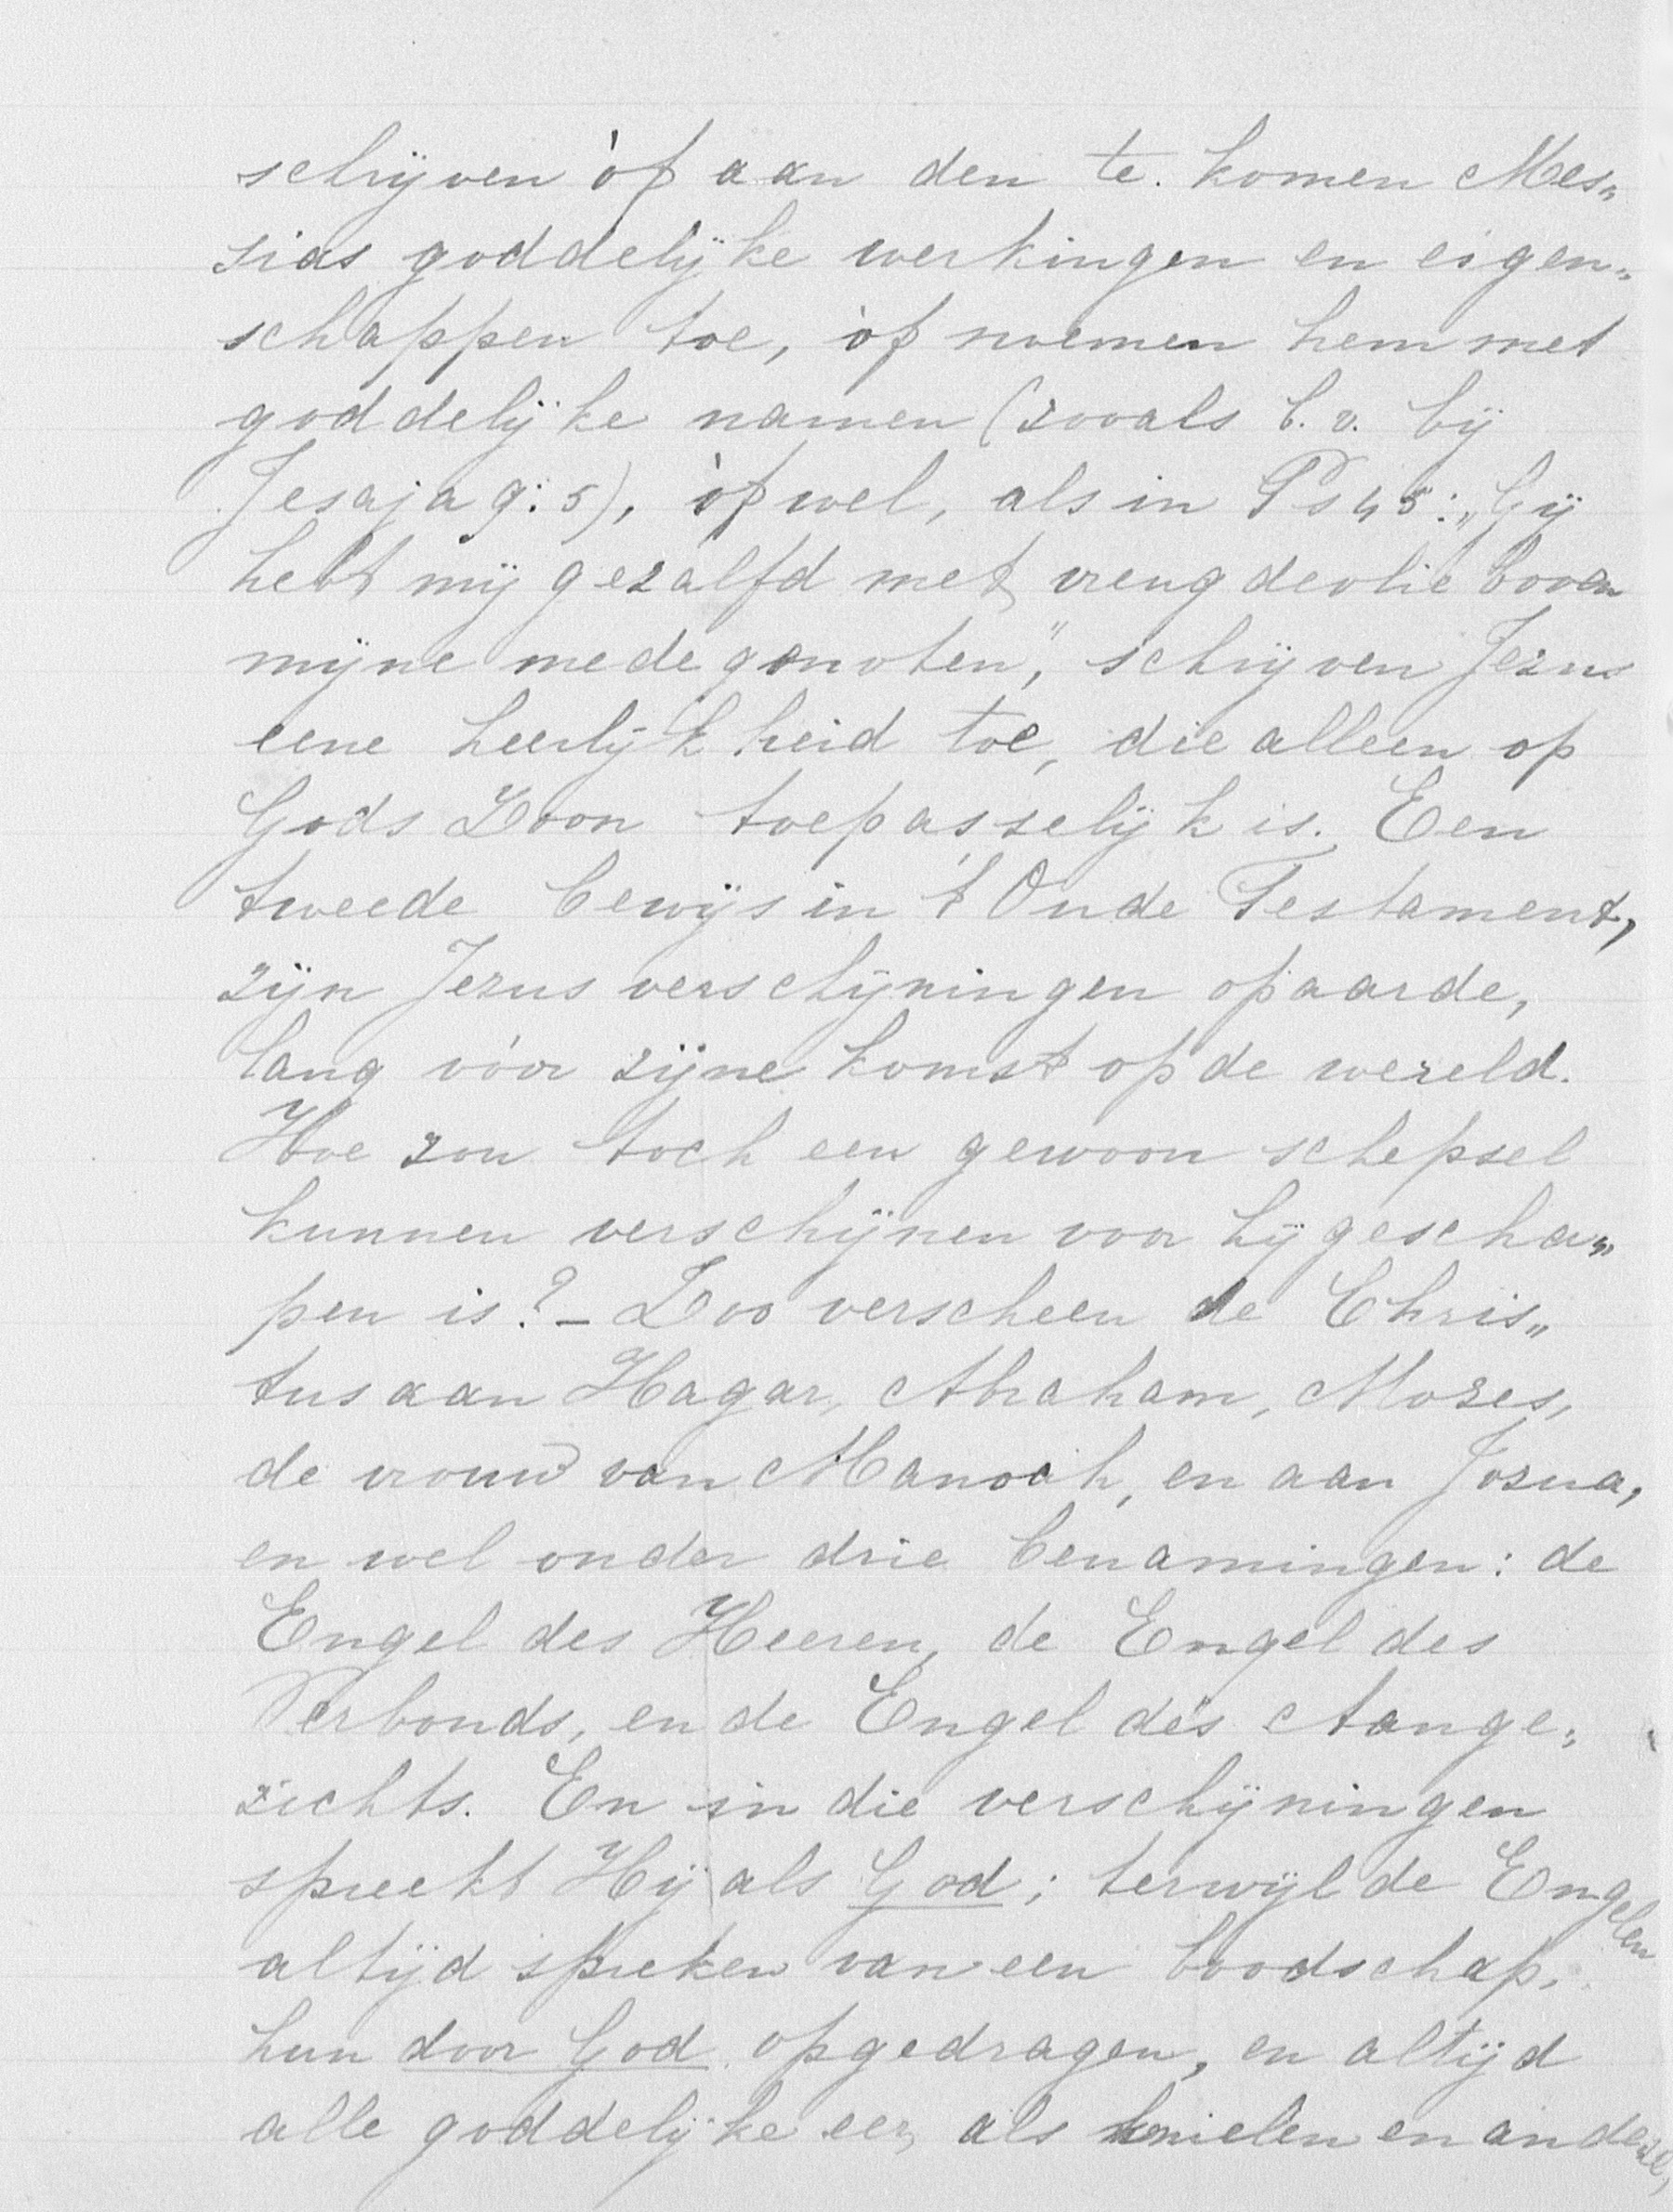 schrijven òf aan den te komen Mes„
sias goddelijke werkingen en eigen„
schappen toe, òf noemen hem met
goddelijke namen (zooals b.v. bij
Jesaja 9:5), òf wel, als in Ps 45: „Gij
hebt mij gezalfd met vreugdeolie boven
mijne medegenoten", schrijven Jezus
eene heerlijkheid toe, die alleen op
Gods Zoon toepasselijk is. Een
tweede bewijs in 't Oude Testament,
zijn Jezus verschijningen op aarde,
lang vóor zijne komst op de wereld.
Hoe zou toch een gewoon schepsel
kunnen verschijnen voor hij gescha„
pen is? – Zoo verscheen de Chris„
tus aan Hagar, Abraham, Mozes,
de vrouw van Manoach, en aan Jozua,
en wel onder drie benamingen: de
Engel des Heeren, de Engel des
Verbonds, en de Engel des Aange„
zichts. En in die verschijningen
spreekt Hij als God; terwijl de Engelen
altijd spreken van een boodschap,
hun door God opgedragen, en altijd
alle goddelijke eer, als knielen en andere,